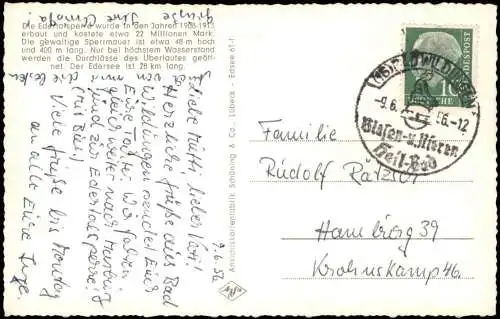 Die Edertalsperre wurde in den Jahren 1908-1913
erbaut und kostete etwa 22 Millionen Mark.
Die gewaltige Sperrmauer ist etwa 48 m hoch
und 400 m lang. Nur bei höchstem Wasserstand
werden die Durchlässe des Überlaufes geöff-
net. Der Edersee ist 28 km lang.
9.6.56
Liebe Mutti, lieber
Herzliche Grüße aus Bad
Wildungen senden Euch
Eure Wir fahren
gleich weiter nach Marburg
sind zur Edertalsperre.
Viele Grüße bis Montag
an alle Eure Inge.
Ansichtskartenfabrik Schöning & Co., Lübeck - Edsee 61 f
DEUTSCHE BUNDESPOST
10
BAD WILDUNGEN
-9.6.56.-12
Blasen-u.Nieren
Heil-Bad
Familie
Rudolf
Hamburg 39
Krohnskamp 46.